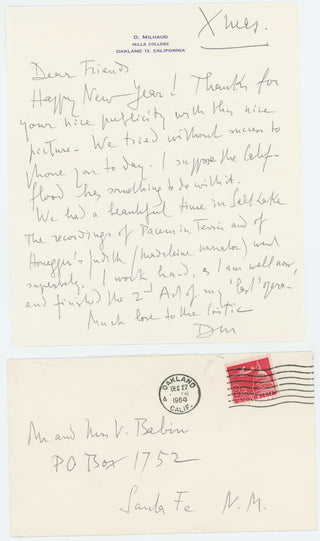 Xmas.
D. MILHAUD
MILLS COLLEGE
OAKLAND 13, CALIFORNIA
Dear Friends
Happy New-Year! Thanks for
your nice publicity with this nice
picture. We tried without success to
phone you to day. I suppose the Calif.
flood has something to do with it.
We had a beautiful time in Salt Lake
The recordings of Pacem in Terris and of
Honegger's Judith (Madeleine narrator) went
superbly. I work hard, as I am well now,
and finished the 2nd Act of my "last" opera.
Much love to the
DM
OAKLAND
DEC 27
1964
CALIF.
Mr and Mrs V. Babin
PO Box 1752
Santa Fe N.M.